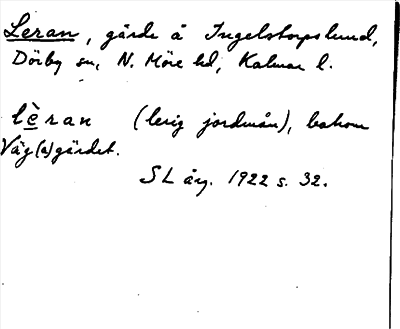 Leran, gärde å Ingelstorpslund,
Dörby sn, N. Möre hd, Kalmar l.
lèran (lerig jordmån), bakom
Väg(a)gärdet.
SL årg. 1922 s. 32.